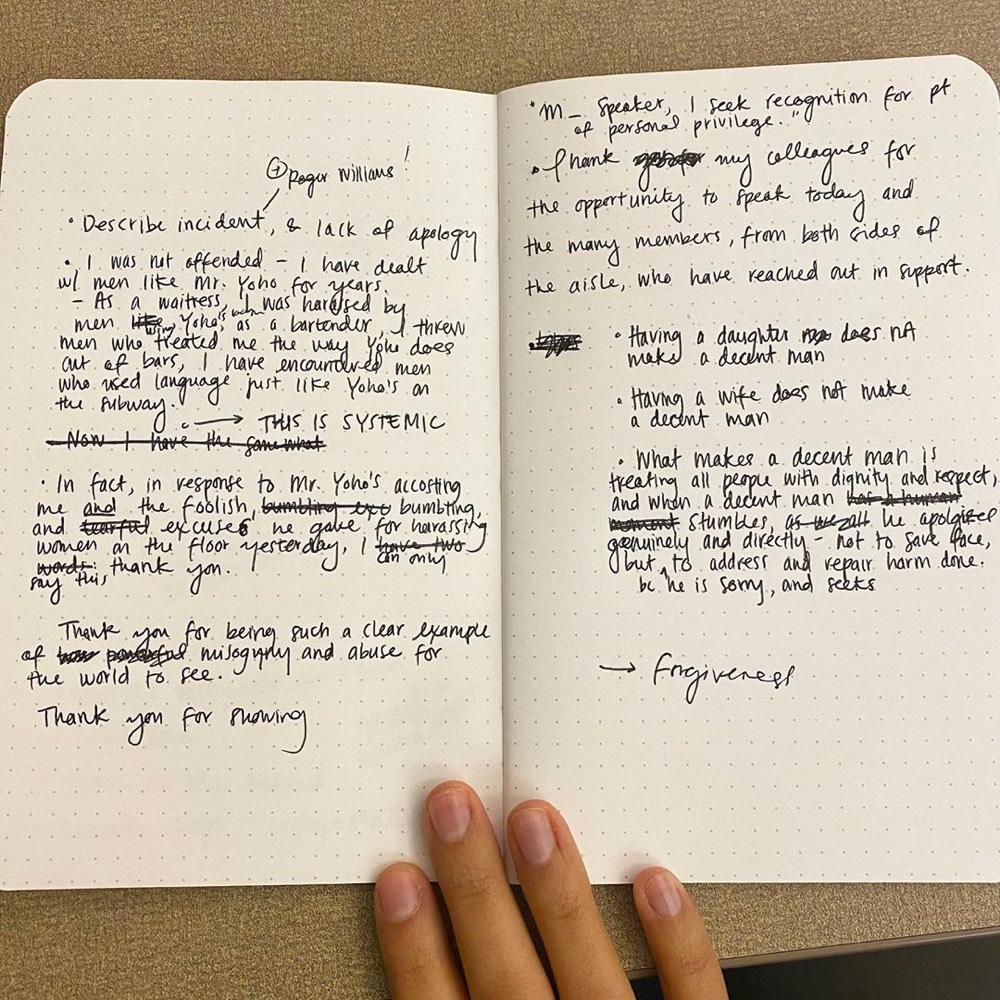 + Roger Williams!
• Describe incident, & lack of apology
• I was not offended – I have dealt
w/ men like Mr. Yoho for years.
– As a waitress, I was harassed by
men like using Yoho's words as a bartender, I threw
men who treated me the way Yoho does
out of bars, I have encountered men
who used language just like Yoho's on
the subway.
→ THIS IS SYSTEMIC
Now I have the somewhat
• In fact, in response to Mr. Yoho's accosting
me and the foolish, bumbling exc bumbling,
and tearful excuses he gave for harassing
women on the floor yesterday, I have two
can only
words: say this, thank you.
Thank you for being such a clear example
of how powerful misogyny and abuse for
the world to see.
Thank you for showing
"M_ Speaker, I seek recognition for pt
of personal privilege."
• Thank my colleagues for
the opportunity to speak today and
the many members, from both sides of
the aisle, who have reached out in support.
• Having a daughter does not
make a decent man
• Having a wife does not make
a decent man
• What makes a decent man is
treating all people with dignity and respect,
and when a decent man has a human
moment stumbles, as we all he apologizes
genuinely and directly – not to save face,
but to address and repair harm done.
bc he is sorry, and seeks
→ forgiveness